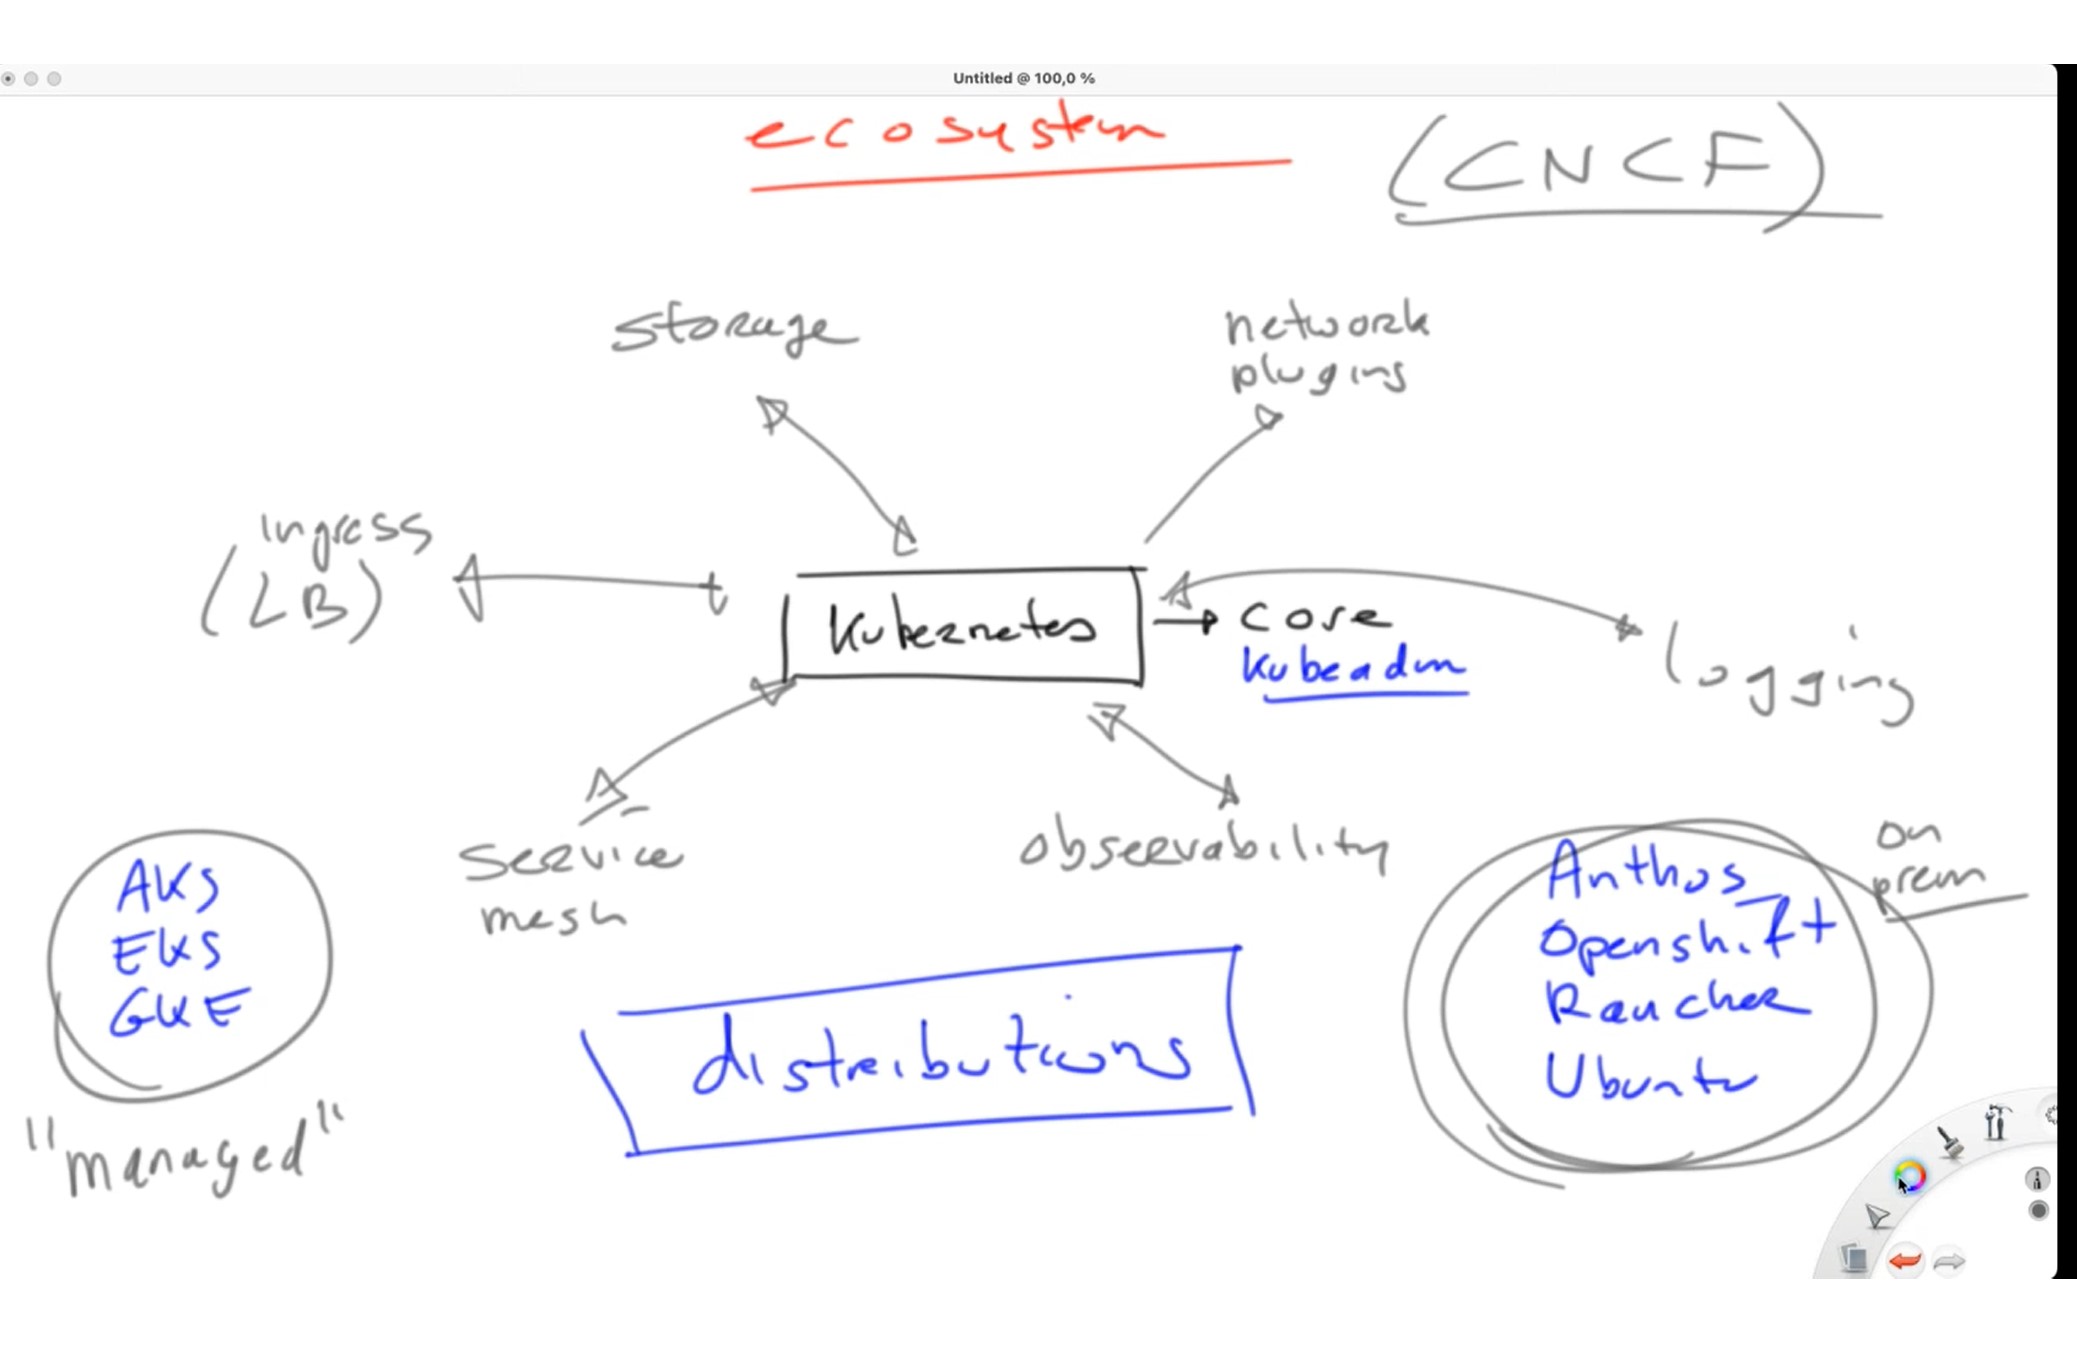 Untitled @ 100,0 %
ecosystem
(CNCF)
storage
network
plugins
Ingress
(LB)
Kubernetes
core
Kubeadm
logging
service
mesh
observability
AKS
EKS
GKE
"managed"
distributions
Anthos
Openshift
Rancher
Ubuntu
on
prem